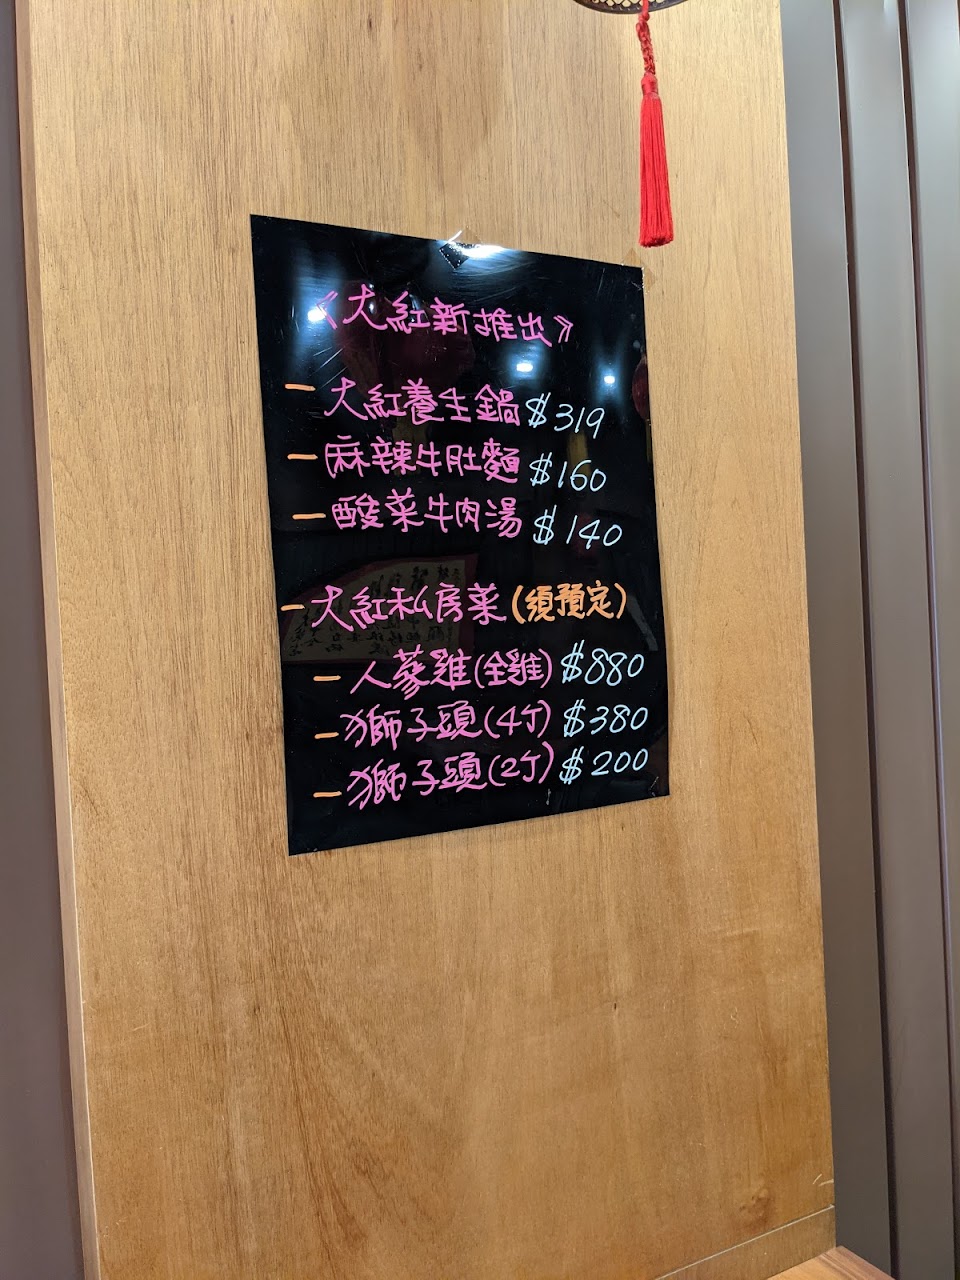 《大紅新推出》
－大紅養生鍋 $319
－麻辣牛肚麵 $160
－酸菜牛肉湯 $140
－大紅私房菜(須預定)
－人蔘雞(全雞) $880
－獅子頭(4个) $380
－獅子頭(2个) $200